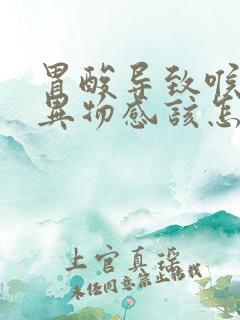 胃酸导致喉
异物感该怎
上官真瑶
未经同意禁止转载